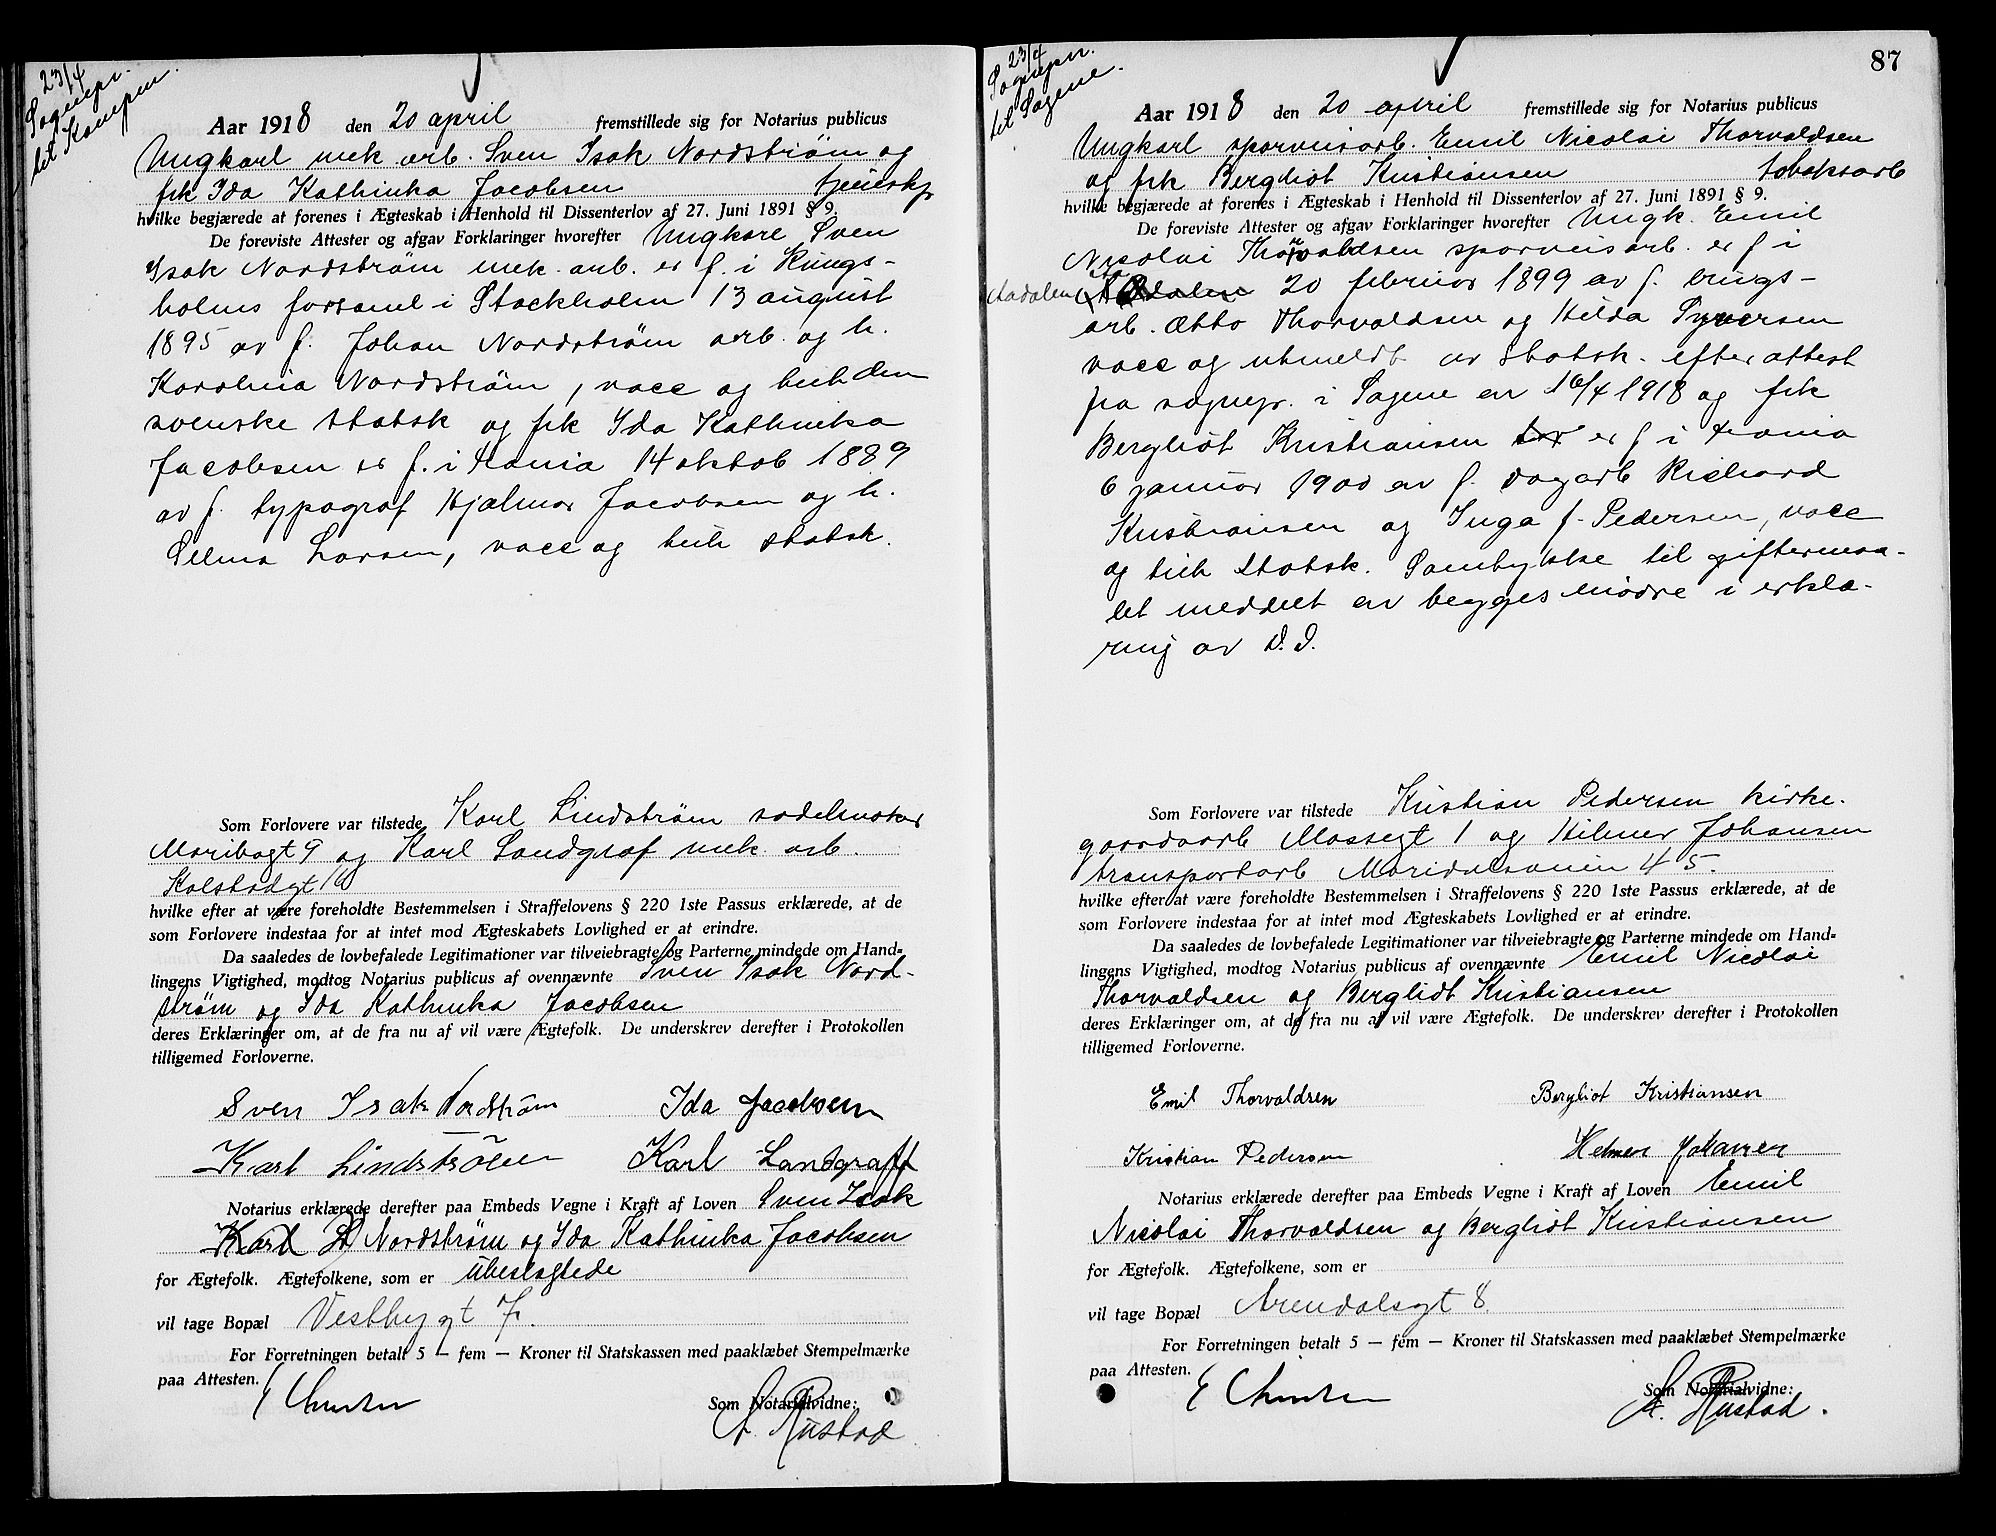 23/4
Sognepr.
til Kampen.
Aar 1918 den 20 april fremstillede sig for Notarius publicus
Ungkarl mek arb. Sven Isak Nordstrøm og
frk Ida Kathinka Jacobsen
hvilke begjærede at forenes i Ægteskab i Henhold til Dissenterlov af 27. Juni 1891 § 9.
De foreviste Attester og afgav Forklaringer hvorefter Ungkare Sven
Isak Nordstrøm mek. arb. er f. i Kungs-
holms forsaml i Stockholm 13 august
1895 av f. Johan Nordstrøm arb. og h.
Karolina Nordstrøm, vacc og tilh den
svenske statsk og frk Ida Kathinka
Jacobsen er f. i Krania 14 oktob 1889
av f. typograf Hjalmar Jacobsen og h.
Selma Larsen, vacc og tilh statsk.
Som Forlovere var tilstede Karl Lindstrøm sadelmaker
Maribogt 9 og Karl Landgraf mek. arb.
Kolstadgt
hvilke efter at være foreholdte Bestemmelsen i Straffelovens § 220 1ste Passus erklærede, at de
som Forlovere indestaa for at intet mod Ægteskabets Lovlighed er at erindre.
Da saaledes de lovbefalede Legitimationer var tilveiebragte og Parterne mindede om Hand-
lingens Vigtighed, modtog Notarius publicus af ovennævnte Sven Isak Nord-
strøm og Ida Kathinka Jacobsen
deres Erklæringer om, at de fra nu af vil være Ægtefolk. De underskrev derefter i Protokollen
tilligemed Forloverne.
Sven Isak Nordstrøm Ida Jacobsen
Karl Lindström Karl Landgraff
Notarius erklærede derefter paa Embeds Vegne i Kraft af Loven Sven Isak
Karl Nordstrøm og Ida Kathinka Jacobsen
for Ægtefolk. Ægtefolkene, som er ubeslegtede
vil tage Bopæl Vestbygt 7.
For Forretningen betalt 5 — fem — Kroner til Statskassen med paaklæbet Stempelmærke
paa Attesten.
Som Notarialvidne:
A. Rustad
87
23/4
Sognepr.
til Sagene.
Aar 1918 den 20 april fremstillede sig for Notarius publicus
Ungkarl sporveisarb. Emil Nicolai Thorvaldsen
og frk Bergliot Kristiansen tobaksarb
hvilke begjærede at forenes i Ægteskab i Henhold til Dissenterlov af 27. Juni 1891 § 9.
De foreviste Attester og afgav Forklaringer hvorefter Ungk. Emil
Nicolai Thorvaldsen sporveisarb. er f i
Aadalen 20 februar 1899 av f. brugs-
arb. Otto Thorvaldsen og Hilda Syversen
vacc og utmeldt av statsk. efter attest
fra sognepr. i Sagene av 16/4 1918 og frk
Bergliot Kristiansen er f i Krania
6 januar 1900 av f. dagarb Richard
Kristiansen og Inga f. Pedersen, vacc
og tilh statsk. Samtykke til giftermaa-
let meddelt av begges mødre i erklæ-
ring av D. D.
Som Forlovere var tilstede Kristian Pedersen kirke-
gaardsarb Mossegt 1 og Hilmer Johansen
transportarb Maridalsveien 45.
hvilke efter at være foreholdte Bestemmelsen i Straffelovens § 220 1ste Passus erklærede, at de
som Forlovere indestaa for at intet mod Ægteskabets Lovlighed er at erindre.
Da saaledes de lovbefalede Legitimationer var tilveiebragte og Parterne mindede om Hand-
lingens Vigtighed, modtog Notarius publicus af ovennævnte Emil Nicolai
Thorvaldsen og Bergliot Kristiansen
deres Erklæringer om, at de fra nu af vil være Ægtefolk. De underskrev derefter i Protokollen
tilligemed Forloverne.
Emil Thorvaldsen Bergliot Kristiansen
Kristian Pedersen Helmer Johansen
Notarius erklærede derefter paa Embeds Vegne i Kraft af Loven Emil
Nicolai Thorvaldsen og Bergliot Kristiansen
for Ægtefolk. Ægtefolkene, som er
vil tage Bopæl Arendalsgt 8.
For Forretningen betalt 5 — fem — Kroner til Statskassen med paaklæbet Stempelmærke
paa Attesten.
Som Notarialvidne:
A. Rustad.